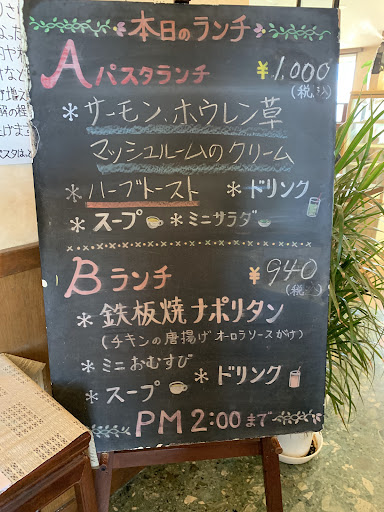 本日のランチ
A パスタランチ ¥1,000
(税込)
*サーモン、ホウレン草
マッシュルームのクリーム
*ハーブトースト *ドリンク
*スープ *ミニサラダ
Bランチ ¥940
(税込)
*鉄板焼ナポリタン
(チキンの唐揚げオーロラソースがけ)
*ミニおむすび
*スープ *ドリンク
PM 2:00まで